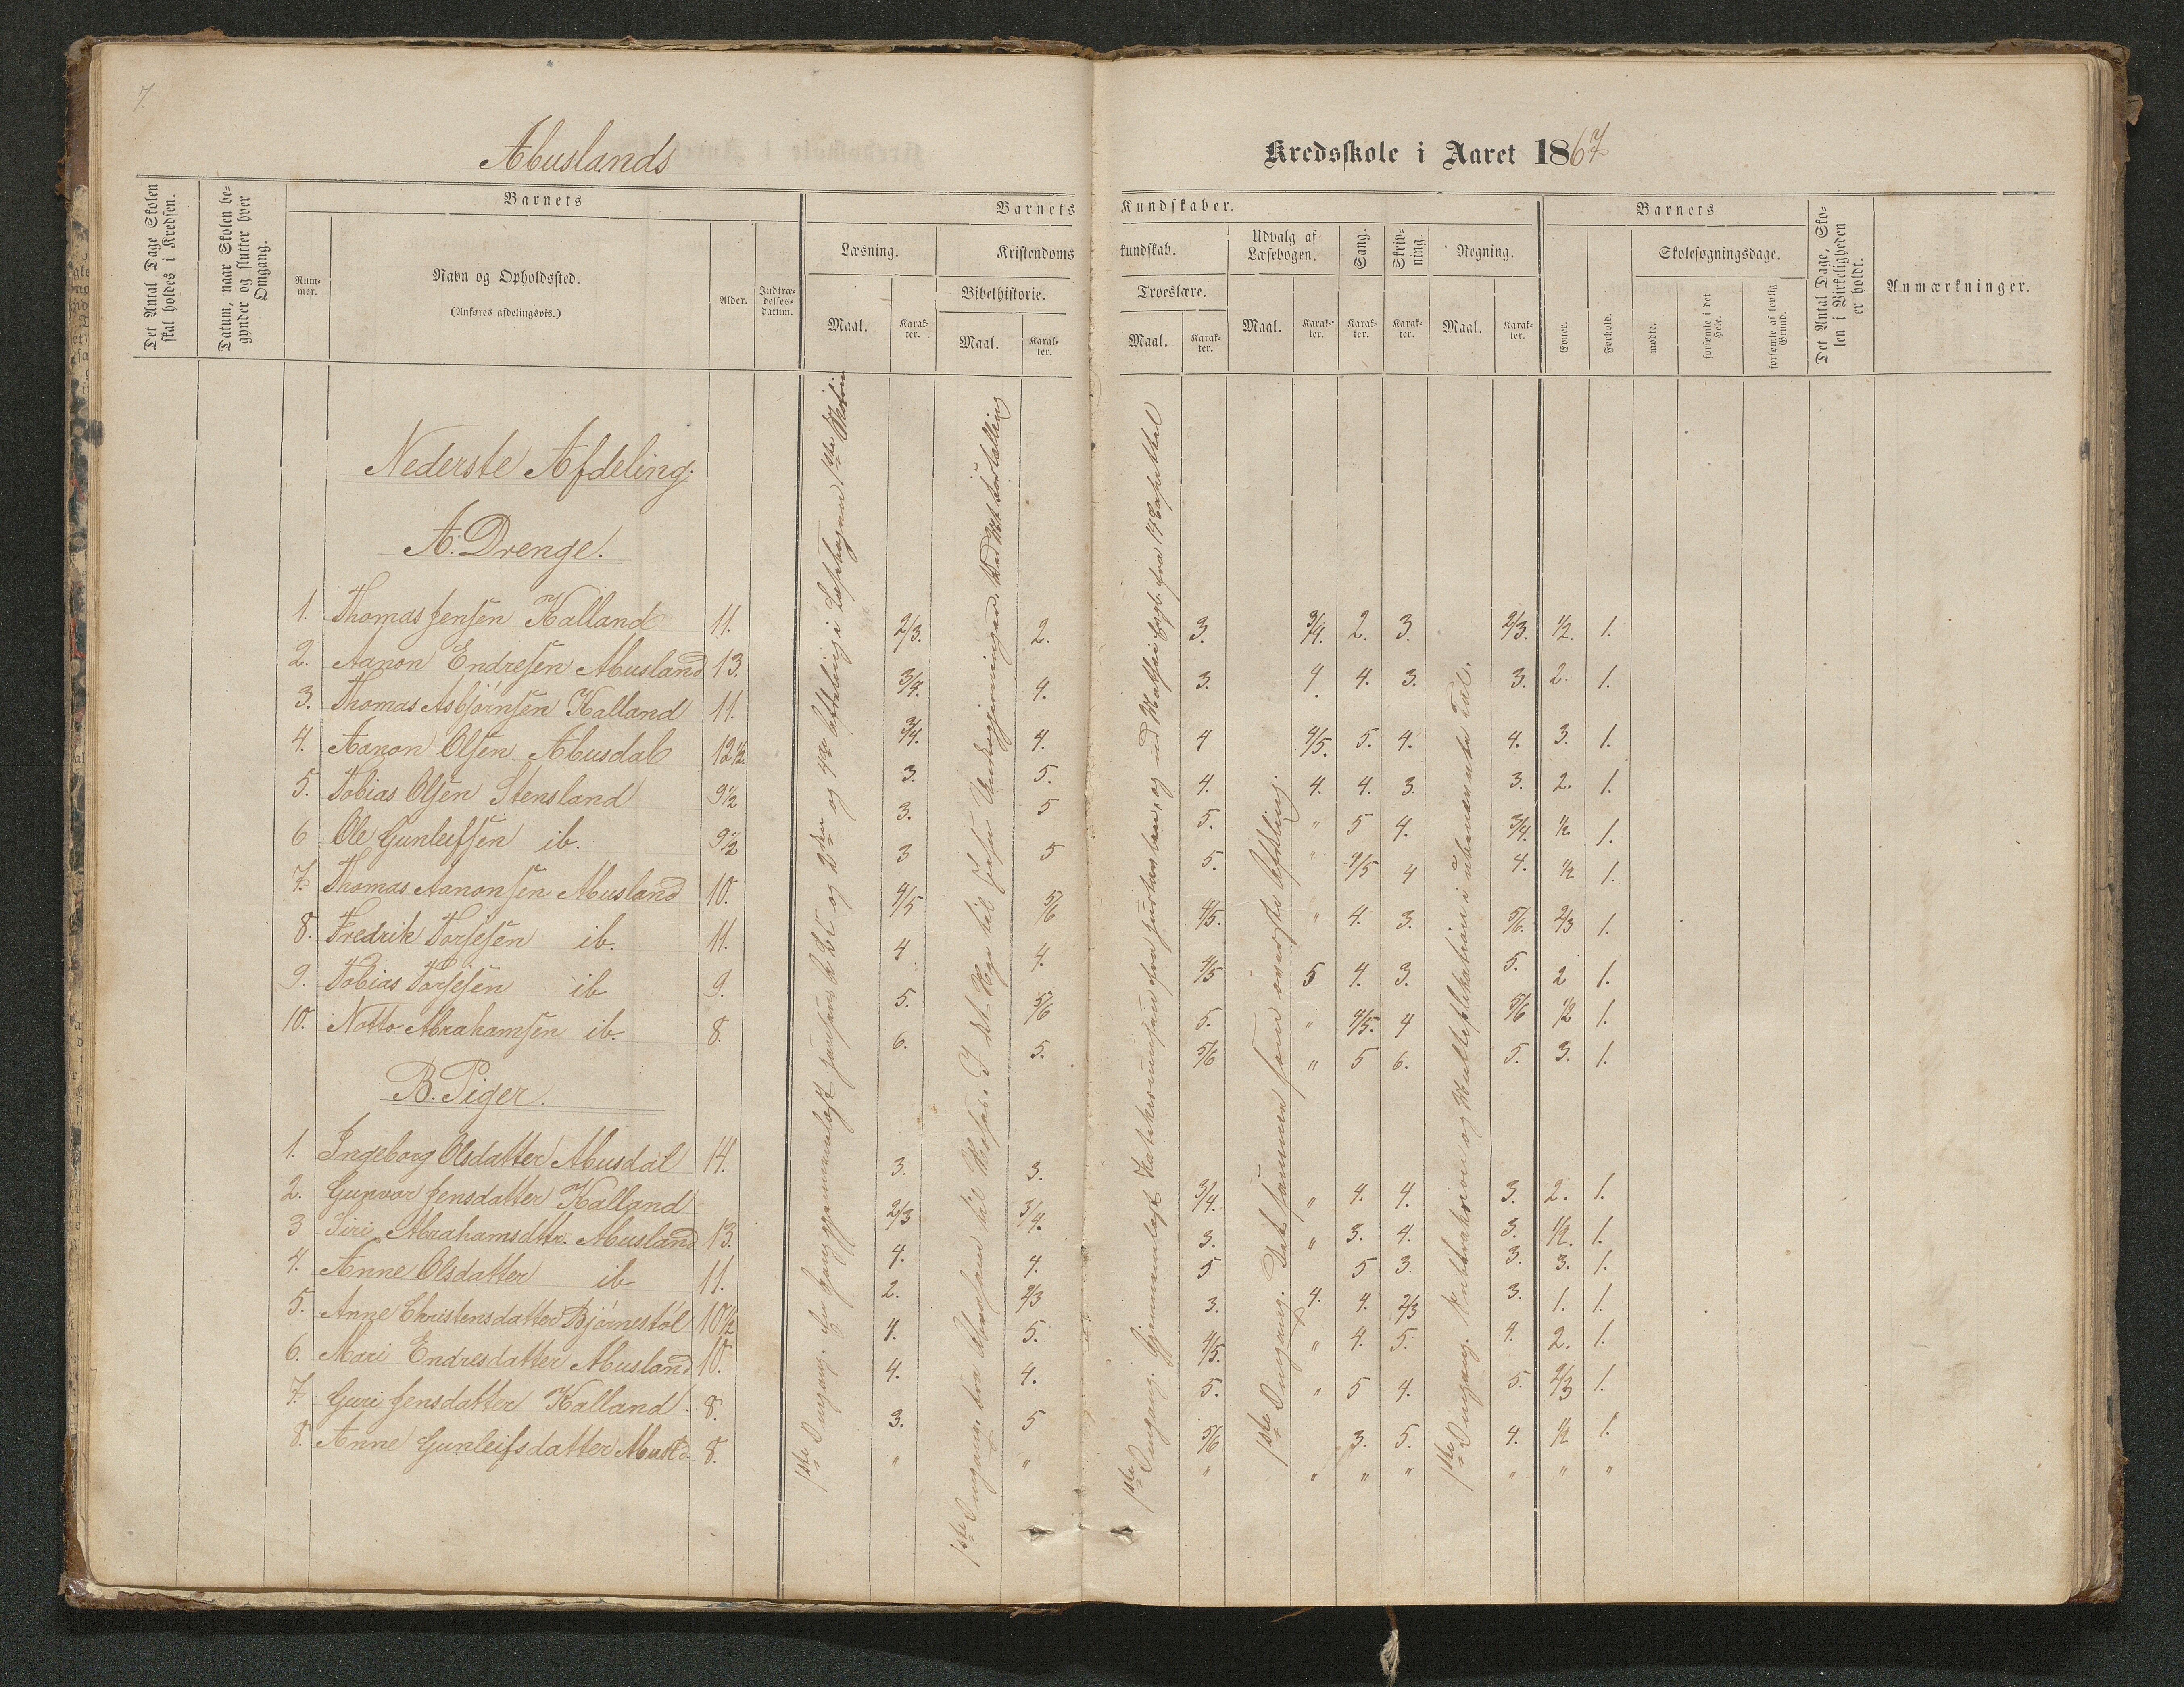 7.
Abuslands
Kredsskole i Aaret 1867
Det Antal Dage Skolen skal holdes i Kredsen.
Datum, naar Skolen begynder og slutter hver Omgang.
Barnets
Nummer.
Navn og Opholdssted.
(Anføres afdelingsvis.)
Alder.
Indtrædelsesdatum.
Barnets Kundskaber.
Læsning.
Maal.
Karakter.
Kristendomskundskab.
Bibelhistorie.
Maal.
Karakter.
Troeslære.
Maal.
Karakter.
Udvalg af Læsebogen.
Maal.
Karakter.
Sang.
Karakter.
Skrivning.
Karakter.
Regning.
Maal.
Karakter.
Barnets
Evner.
Forhold.
Skolesøgningsdage.
mødte.
forsømte i det Hele.
forsømte af lovlig Grund.
Det Antal Dage, Skolen i Virkeligheden er holdt.
Anmærkninger.
Nederste Afdeling.
A. Drenge.
1. Thomas Jensen Kalland 11. 2/3. 2. 3. 3/4. 2. 3. 2/3. 1/2. 1.
2. Aanon Endresen Abusland 13. 3/4. 4. 3. 4 4. 3. 3. 2. 1.
3. Thomas Asbjørnsen Kalland 11. 3/4. 4. 4 4/5. 5. 4. 4. 3. 1.
4. Aanon Olsen Abusdal 12 1/2. 3. 5. 4. 4. 4. 3. 3. 2. 1.
5. Tobias Olsen Stensland 9 1/2 3. 5 5. " 5 4. 3/4. 1/2. 1.
6 Ole Gunleifsen ib. 9 1/2 3 5 5. " 4/5 4 4. 1/2 1.
7. Thomas Aanonsen Abusland 10. 4/5 5/6 4/5. " 4. 3. 5/6. 2/3 1.
8. Fredrik Torjesen ib. 11. 4 4. 4/5 5 4. 3. 5. 2 1.
9. Tobias Torjesen ib 9. 5. 5/6 5. " 4/5. 4 5/6 1/2 1.
10. Notto Abrahamsen ib. 8. 6. 5. 5/6 " 5 6. 5. 3. 1.
B. Piger.
1. Ingeborg Olsdatter Abusdal 14. 3. 3. 3/4. " 4. 4. 3. 2. 1.
2. Gunvor Jensdatter Kalland 2/3 3/4. 3. " 3. 4. 3. 1/2. 1.
3 Siri Abrahamsdttr. Abusland 13. 4. 4. 5 5 3. 3. 3. 1.
4. Anne Olsdatter ib 11. 2. 2/3 3. 4. 4. 2/3 3. 1. 1.
5. Anne Christensdatter Bjørnestøl 10 1/2 4. 5. 4/5. " 4. 5. 4. 2. 1.
6. Mari Endresdatter Abusland 10. 4. 4. 5. " 5 4. 5. 2/3 1.
7. Guri Jensdatter Kalland. 8. 3. 5 5/6 3. 5. 4. 1/2 1.
8. Anne Gunleifsdatter Abusld. 8. " " " " " " " " "
1ste Omgang. og 2den og 4de Afdeling i Læsebogen 1ste
1ste Omgang. fra til Moses. I det Nye til Jesu
1ste Omgang. Gjennemlæst fra og
1ste Omgang. Det samme som øverste Afdeling.
1ste Omgang. Subtraktion og Multiplikation i ubenævnte Tal.